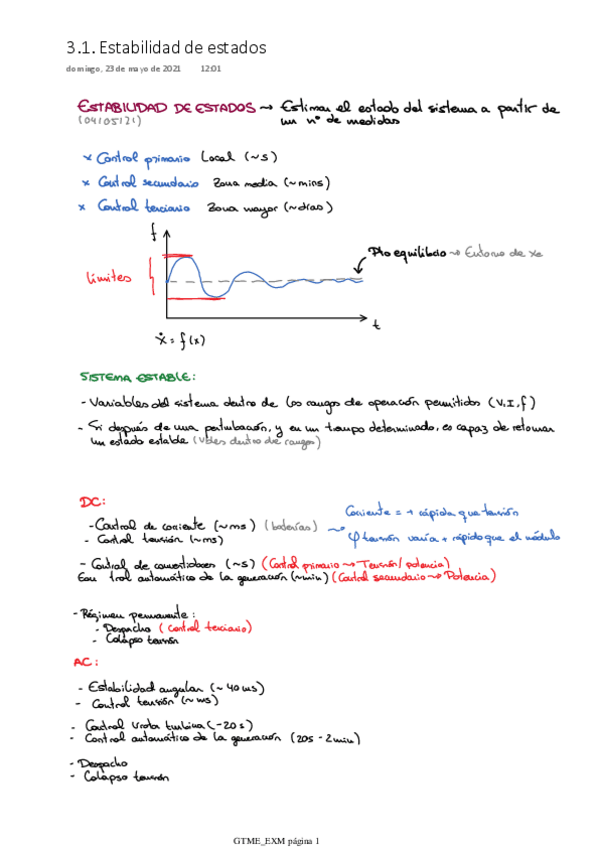 3.1. Estabilidad de estados
domingo, 23 de mayo de 2021 12:01
ESTABILIDAD DE ESTADOS → Estimar el estado del sistema a partir de
(04/05/21) un nº de medidas
x Control primario Local (~s)
x Control secundario Zona media (~mins)
x Control terciario Zona mayor (~días)
f
Pto equilibrio → Entorno de xe
Límites
t
ẋ = f(x)
SISTEMA ESTABLE:
- Variables del sistema dentro de los rangos de operación permitidos (V, I, f)
- Si después de una perturbación, y en un tiempo determinado, es capaz de retomar
un estado estable (vbles dentro de rangos)
DC:
Corriente = + rápida que tensión
- Control de corriente (~ms) (baterías) →
φ tensión varía + rápido que el módulo
- Control tensión (~ms)
- Control de convertidores (~s) (Control primario → Tensión/potencia)
Con trol automático de la generación (~min) (Control secundario → Potencia)
- Régimen permanente:
- Despacho (control terciario)
- Colapso tensión
AC:
- Estabilidad angular (~40ms)
- Control tensión (~ms)
- Control turbina (~20s)
- Control automático de la generación (20s - 2min)
- Despacho
- Colapso tensión
GTME_EXM página 1